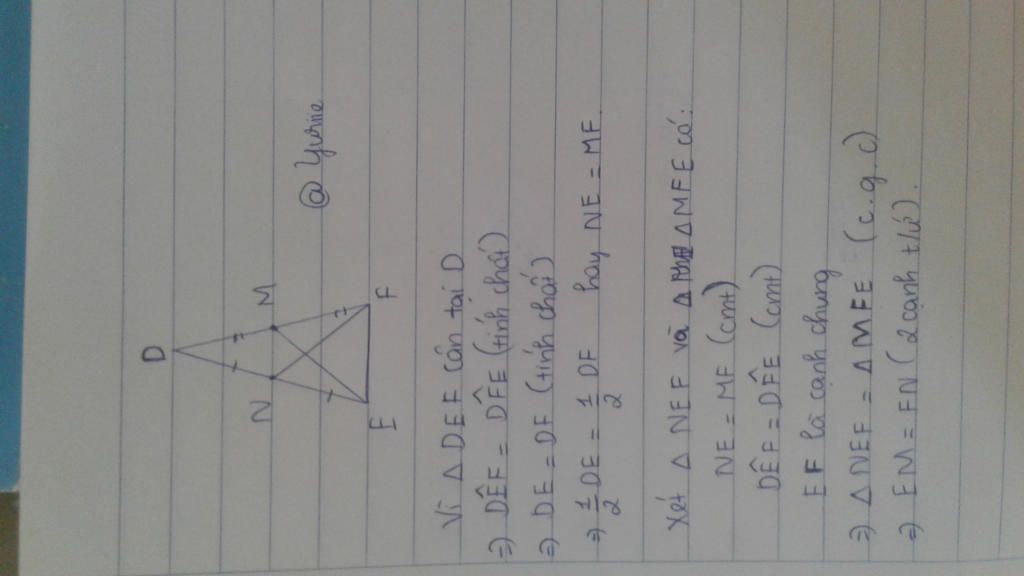 D
N M
E F
@ Yuriie
Vì Δ DEF cân tại D
⇒ DÊF = DF̂E (tính chất)
⇒ DE = DF (tính chất)
⇒ 1/2 DE = 1/2 DF hay NE = MF
Xét Δ NEF và Δ MFE có:
NE = MF (cmt)
DÊF = DF̂E (cmt)
EF là cạnh chung
⇒ Δ NEF = Δ MFE (c.g.c)
⇒ EM = FN (2 cạnh t/ứ).